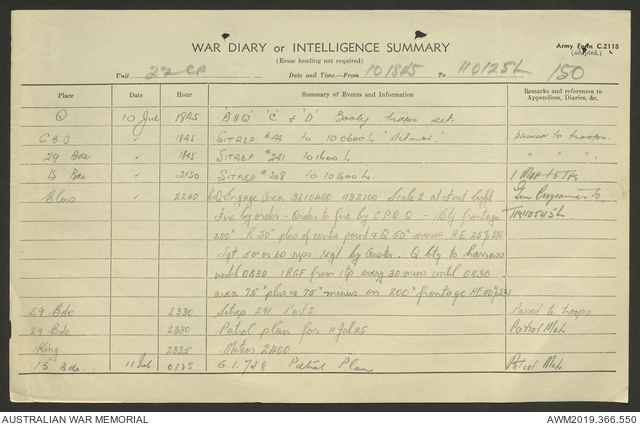 WAR DIARY or INTELLIGENCE SUMMARY
Army Form C.2118
(adapted.)
(Erase heading not required)
Unit 22 CP Date and Time.—From 101845 To 110125L 150
Place Date Hour Summary of Events and Information Remarks and references to Appendices, Diaries, &c.
Q 10 Jul 1845 'BHQ' 'C' & 'D' Booby traps set.
CBO ✓ 1845 SITREP to 100600L passed to troops
29 Bde ✓ 1845 SITREP #241 101600L " " "
15 Bde ✓ 2150 SITREP #208 to 101600L 1 Map
✓ 2240 Engage area 3610480 1132100 Scale 2 at First light
Gun Programme to
Fire by order - Order to fire by C.P.O. Q - Bty frontage
200° R 30° plus of centre point & Q 50° minus HE 231
50 or 60 reqd by Q bty to harrass
until 0830 from every 30 mins until 0830
area 75° plus & 75° minus on 200° frontage HE 231
29 Bde 2330 Sitrep 291 Part 2 Passed to troops
29 Bde 2330 Patrol plan for 11 Jul 45 Patrol Map
King 2335 Meteor 2400
15 Bde 11 Jul 0125 G.1.748 Patrol Plan Patrol Map
AUSTRALIAN WAR MEMORIAL
AWM2019.366.550